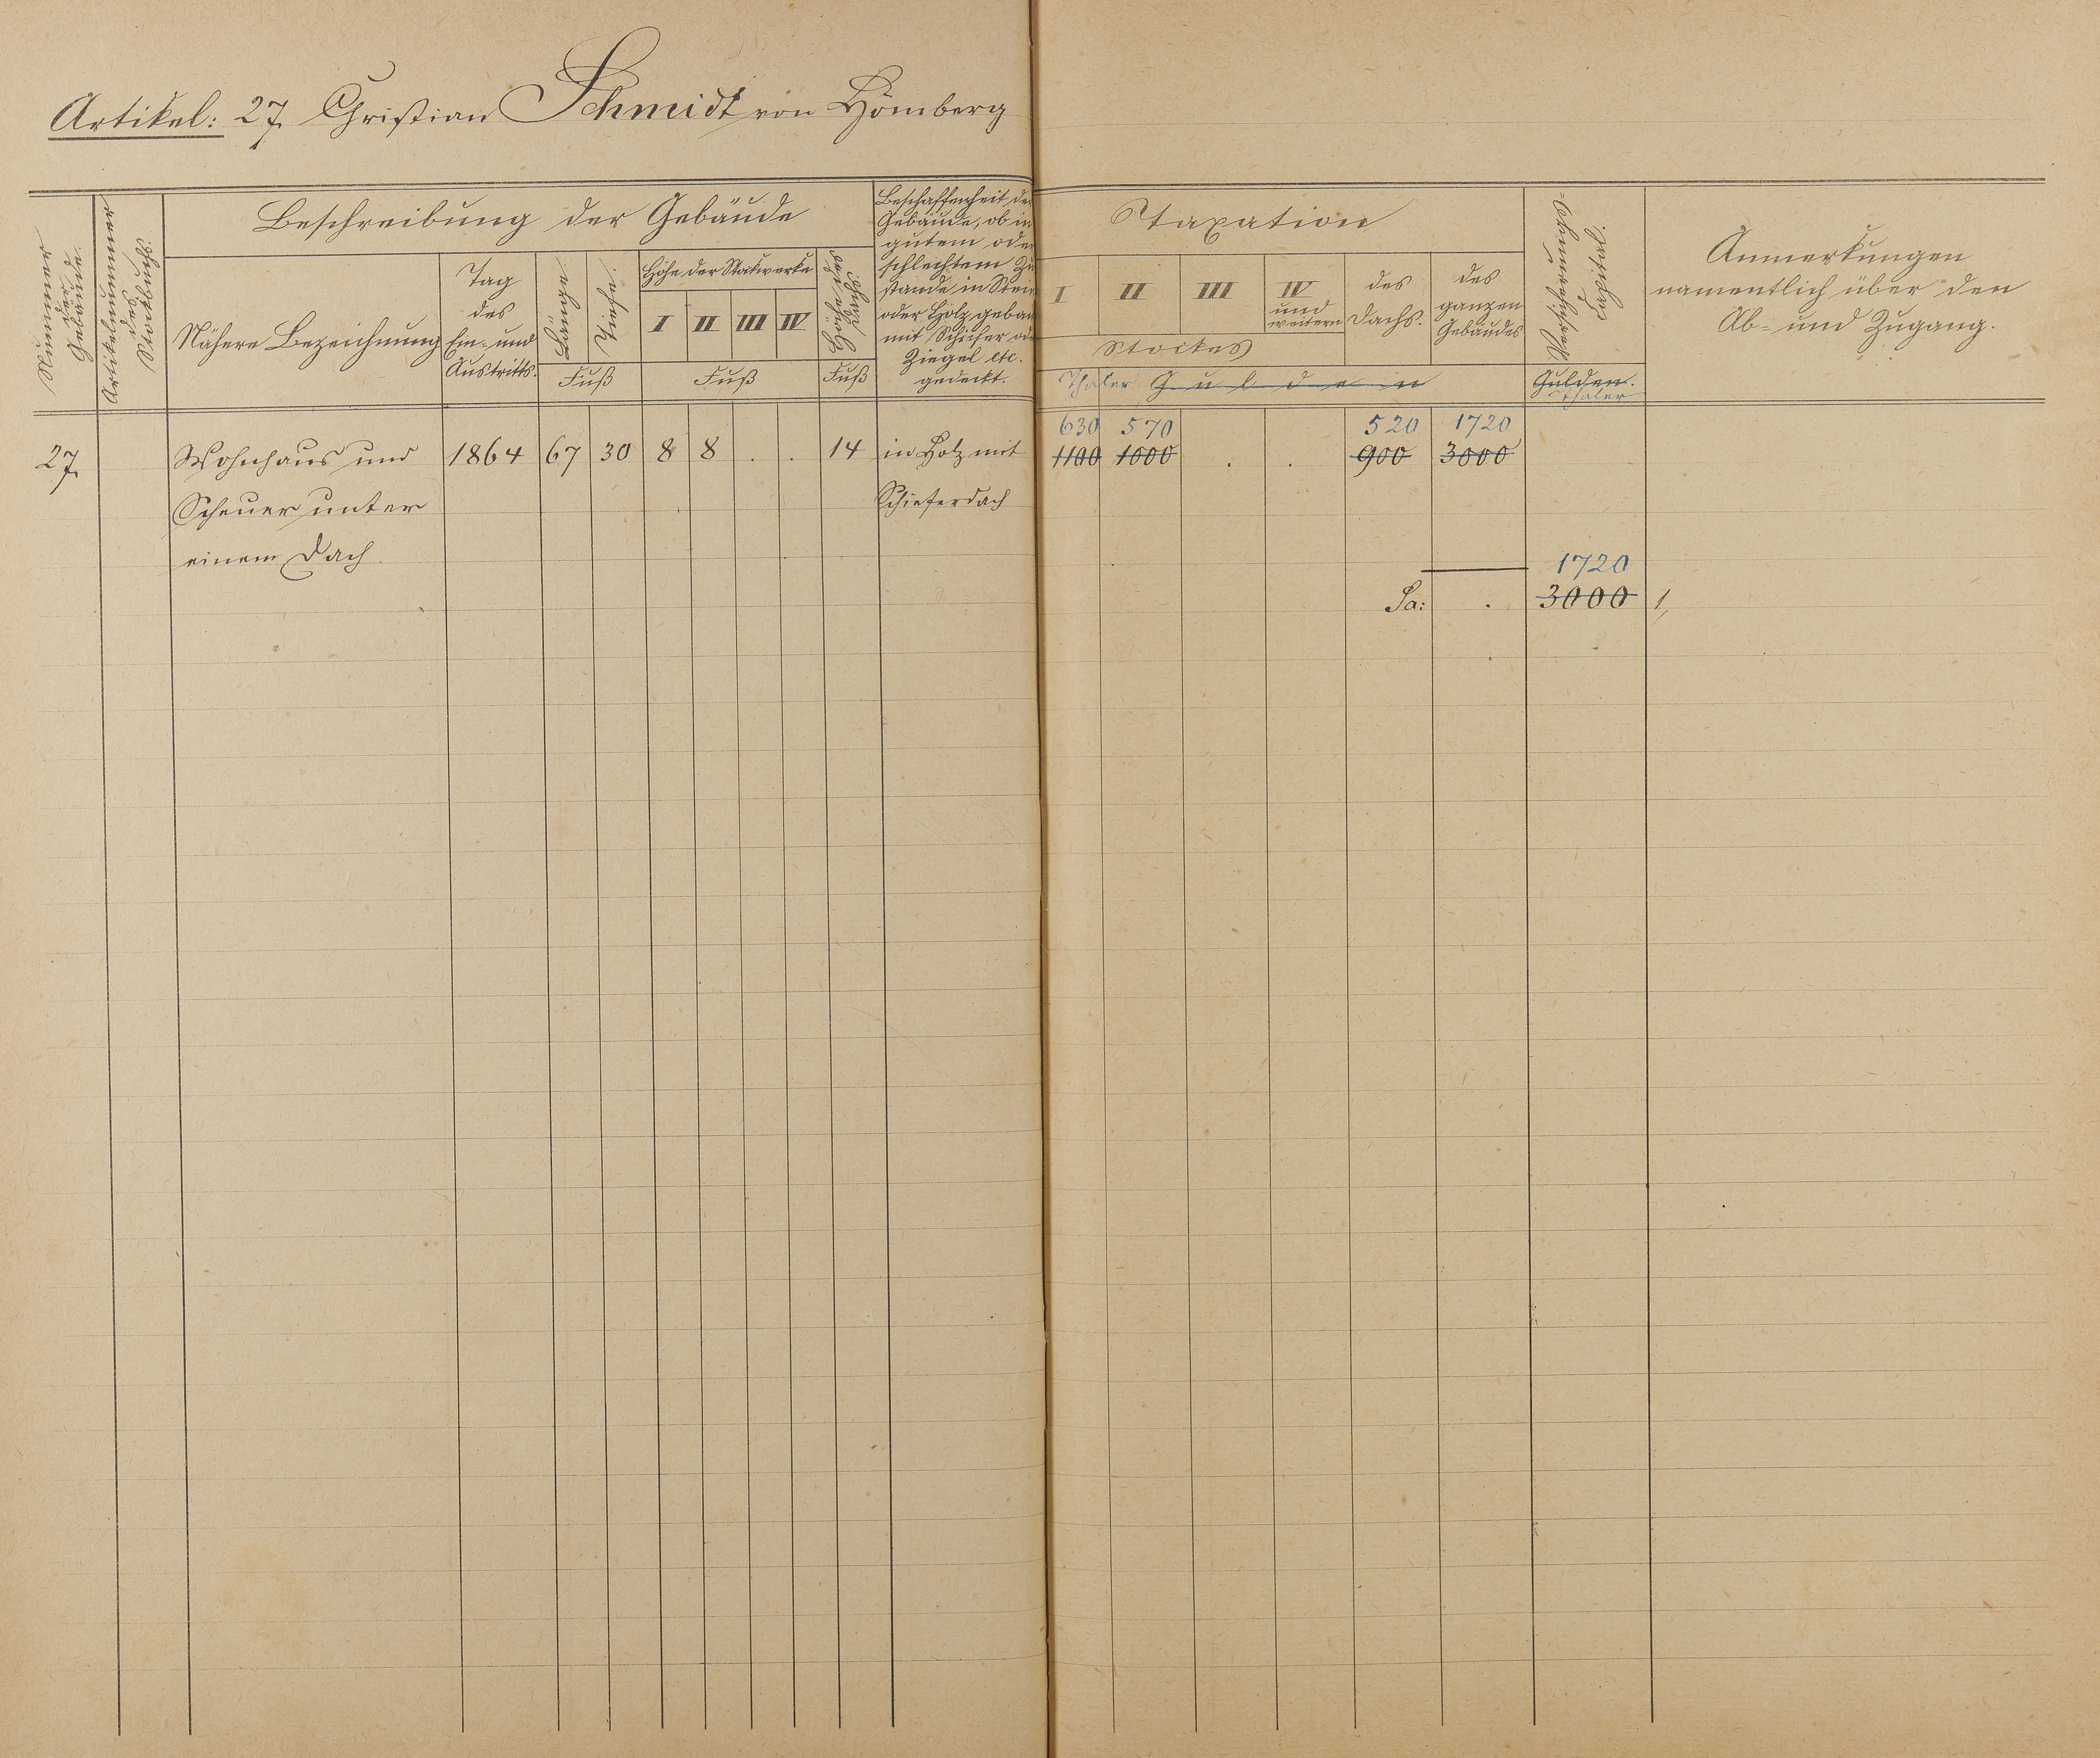 Artikel: 27. Christian Schmidt von Hömberg
Nummer
der
Gebäude.
Artikelnummer
des
Stockbuchs.
Beschreibung der Gebäude
Nähere Bezeichnung
Tag
des
Ein- und
Austritts.
Länge.
Tiefe.
Fuß
Höhe der Stockwerke
I II III IV
Fuß
Höhe des
Dachs
Fuß
Beschaffenheit der
Gebäude, ob in
gutem oder
schlechtem Zu
stande, in Stein
oder Holz gebaut
mit Schiefer oder
Ziegel etc.
gedeckt.
Taxation
I II III IV
und
weitern
Stockes
des
Dachs.
des
ganzen
Gebäudes
Thaler Gulden
Gulden.
Thaler
Anmerkungen
namentlich über den
Ab- und Zugang.
630 570 520 1720
27. Wohnhaus und 1864 67 30 8 8 . . 14 in Holz mit 1100 1000 . . 900 3000
Scheuer unter Schieferdach
einem Dach
1720
Sa: . 3000 1,